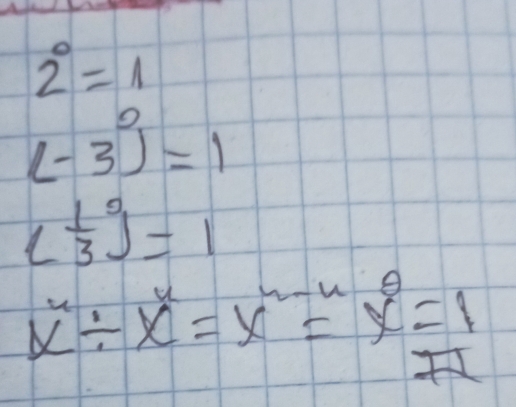 2⁰ = 1
(-3)⁰ = 1
(1/3)⁰ = 1
xⁿ ÷ xⁿ = xⁿ⁻ⁿ = x⁰ = 1